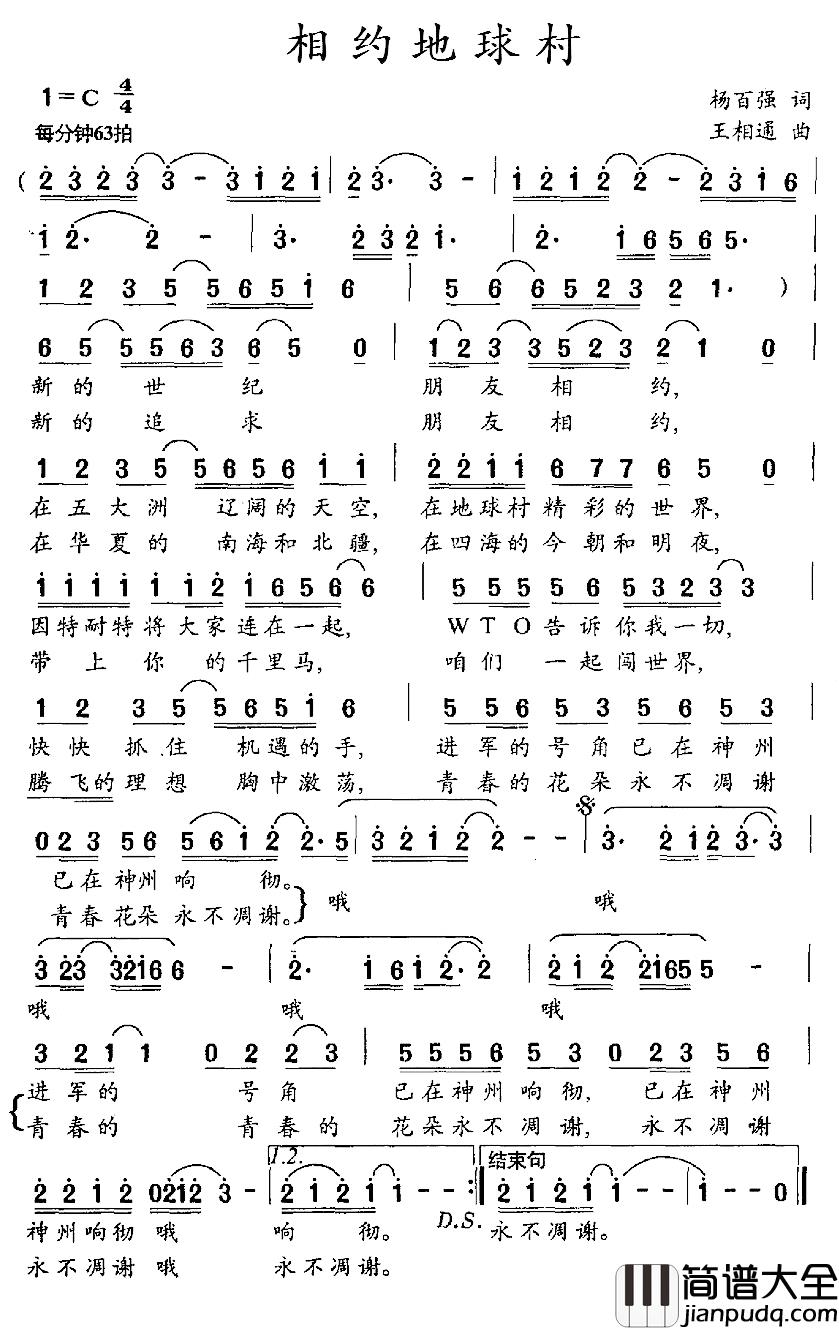 相约地球村
1=C 4/4
杨百强 词
每分钟63拍
王相通 曲
(2 3 2 3 3 - 3 1 2 1 | 2 3· 3 - | 1 2 1 2 2 - 2 3 1 6 |
1 2· 2 - | 3· 2 3 2 1· | 2· 1 6 5 6 5· |
1 2 3 5 5 6 5 1 6 | 5 6 6 5 2 3 2 1· ) |
6 5 5 5 6 3 6 5 0 | 1 2 3 3 5 2 3 2 1 0 |
新的世纪 朋友相约,
新的追求 朋友相约,
1 2 3 5 5 6 5 6 1 1 | 2 2 1 1 6 7 7 6 5 0
在五大洲 辽阔的天空, 在地球村精彩的世界,
在华夏的 南海和北疆, 在四海的今朝和明夜,
1 1 1 1 1 1 2 1 6 5 6 6 | 5 5 5 5 6 5 3 2 3 3
因特耐特将大家连在一起, WTO告诉你我一切,
带上你的千里马, 咱们一起闯世界,
1 2 3 5 5 6 5 1 6 | 5 5 6 5 3 5 6 5 3
快快抓住 机遇的手, 进军的号角已在神州
腾飞的理想 胸中激荡, 青春的花朵永不凋谢
0 2 3 5 6 5 6 1 2 2· 5 | 3 2 1 2 2 - - | 3· 2 1 2 3· 3
已在神州响彻。
青春花朵永不凋谢。} 哦 哦
3 2 3 3 2 1 6 6 - | 2· 1 6 1 2· 2 | 2 1 2 2 1 6 5 5 - |
哦 哦 哦
3 2 1 1 0 2 2 3 | 5 5 5 6 5 3 0 2 3 5 6
进军的 号角 已在神州响彻, 已在神州
青春的 青春的 花朵永不凋谢, 永不凋谢
1.2. 结束句
2 2 1 2 0 2 1 2 3 - | 2 1 2 1 1 - - :| 2 1 2 1 1 - - | 1 - - 0 ‖
D.S.
神州响彻哦 响彻。 永不凋谢。
永不凋谢哦 永不凋谢。
简谱大全
jianpudq.com